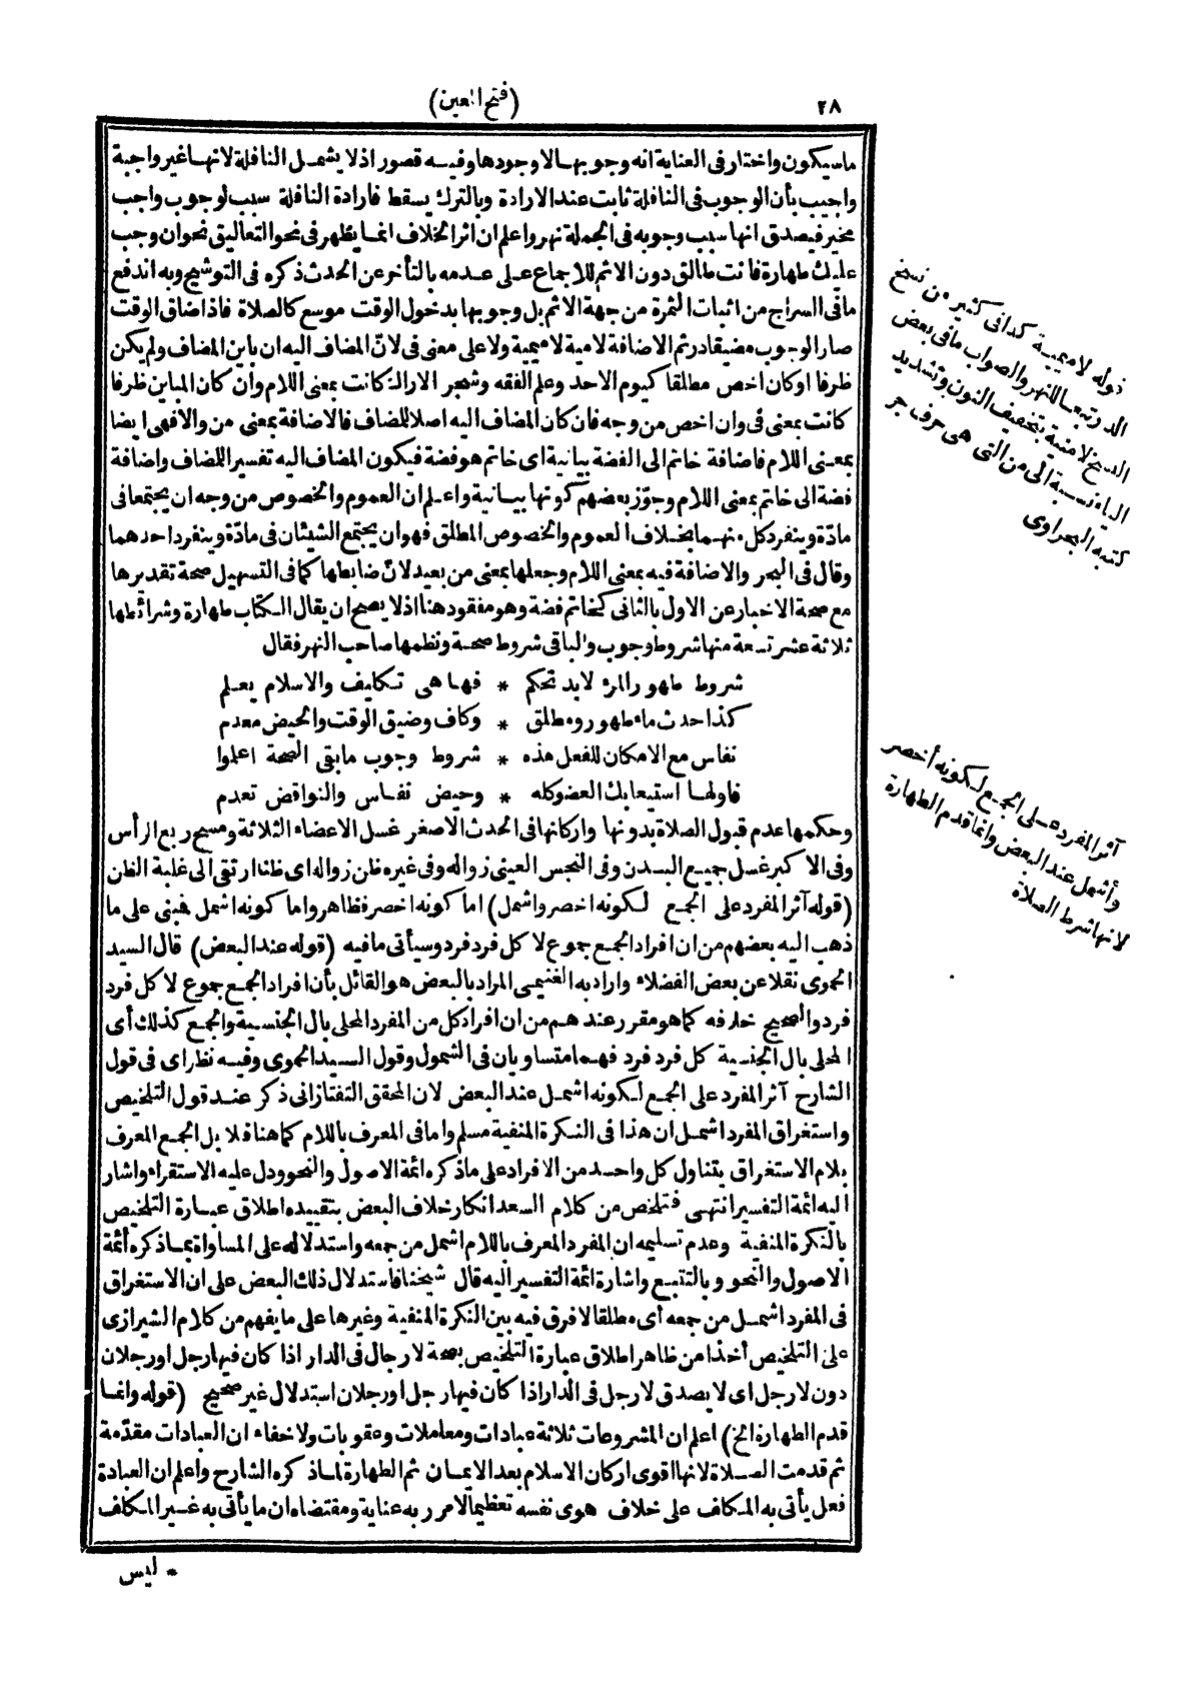 ٢٨
(فتح المعين)
ماسيكون واختار في العناية انه وجوبها لا وجودها وفيه قصور اذ لا يشمل النافلة لانها غير واجبة
واجيب بأن الوجوب في النافلة ثابت عند الارادة وبالترك يسقط فارادة النافلة سبب لوجوب واجب
مخير فيصدق انها سبب وجوبه في الجملة نهر واعلم ان اثر الخلاف انما يظهر في نحو التعاليق نحو ان وجب
عليك طهارة فانت طالق دون الاثم للاجماع على عدمه بالتأخر عن الحدث ذكره في التوشيح وبه اندفع
ما في السراج من اثبات الثمرة من جهة الاثم بل وجوبها بدخول الوقت موسع كالصلاة فاذا ضاق الوقت
صار الوجوب مضيقا در ثم الاضافة لامية لا ميمية ولا على معنى في لانّ المضاف اليه ان باين المضاف ولم يكن
ظرفا او كان اخص مطلقا كيوم الاحد وعلم الفقه وشجر الاراك كانت بمعنى اللام وأن كان المباين ظرفا
كانت بمعنى في وان اخص من وجه فان كان المضاف اليه اصلا للمضاف فالاضافة بمعنى من والا فهى ايضا
بمعنى اللام فاضافة خاتم الى الفضة بيانية اى خاتم هو فضة فيكون المضاف اليه تفسيرا للمضاف واضافة
فضة الى خاتم بمعنى اللام وجوّز بعضهم كونها بيانية واعلم ان العموم والخصوص من وجه ان يجتمعا فى
مادّة وينفرد كل منهما بخلاف العموم والخصوص المطلق فهو ان يجتمع الشيئان فى مادّة وينفرد احدهما
وقال فى البحر والاضافة فيه بمعنى اللام وجعلها بمعنى من بعيد لانّ ضابطها كما فى التسهيل صحة تقديرها
مع صحة الاخبار عن الاول بالثانى كخاتم فضة وهو مفقود هنا اذ لا يصح ان يقال الكتاب طهارة وشرائطها
ثلاثة عشر تسعة منها شروط وجوب والباقى شروط صحة ونظمها صاحب النهر فقال
شروط طهور المرء لابد تحكم * فها هى تكليف والاسلام يعلم
كذا حدث ماء طهور ومطلق * وكاف وضيق الوقت والحيض معدم
نفاس مع الامكان للفعل هذه * شروط وجوب مابقى الصحة اعلموا
فاولها استيعابك العضو كله * وحيض نفاس والنواقض تعدم
وحكمها عدم قبول الصلاة بدونها واركانها فى الحدث الاصغر غسل الاعضاء الثلاثة ومسح ربع الرأس
وفى الاكبر غسل جميع البدن وفى النجس العينى زواله وفى غيره ظن زواله اى ظنا ارتقى الى غلبة الظن
(قوله آثر المفرد على الجمع لكونه اخصر واشمل) اما كونه اخصر فظاهر واما كونه اشمل فبنى على ما
ذهب اليه بعضهم من ان افراد الجمع جموع لا كل فرد فرد وسيأتى مافيه (قوله عند البعض) قال السيد
الحموى نقلا عن بعض الفضلاء واراد به الغنيمى المراد بالبعض هو القائل بأن افراد الجمع جموع لا كل فرد
فرد والصحيح خلافه كما هو مقرر عندهم من ان افراد كل من المفرد المحلى بال الجنسية والجمع كذلك أى
المحلى بال الجنسية كل فرد فرد فهما متساويان فى الشمول وقول السيد الحموى وفيه نظر اى فى قول
الشارح آثر المفرد على الجمع لكونه اشمل عند البعض لان المحقق التفتازانى ذكر عند قول التلخيص
واستغراق المفرد اشمل ان هذا فى النكرة المنفية مسلم واما فى المعرف باللام كما هنا فلا بل الجمع المعرف
بلام الاستغراق يتناول كل واحد من الافراد على ماذكره ائمة الاصول والنحو ودل عليه الاستقراء واشار
اليه ائمة التفسير انتهى فتلخص من كلام السعد انكار خلاف البعض بتقييده اطلاق عبارة التلخيص
بالنكرة المنفية وعدم تسليمه ان المفرد المعرف باللام اشمل من جمعه واستدلاله على المساواة بماذكره أئمة
الاصول والنحو وبالتتبع واشارة ائمة التفسير اليه قال شيخنا فاستدلال ذلك البعض على ان الاستغراق
فى المفرد اشمل من جمعه أى مطلقا لا فرق فيه بين النكرة المنفية وغيرها على ما يفهم من كلام الشيرازى
على التلخيص أخذا من ظاهر اطلاق عبارة التلخيص بصحة لا رجال فى الدار اذا كان فيها رجل او رجلان
دون لا رجل اى لا يصدق لا رجل فى الدار اذا كان فيها رجل او رجلان استدلال غير صحيح (قوله وانما
قدم الطهارة الخ) اعلم ان المشروعات ثلاثة عبادات ومعاملات وعقوبات ولا خفاء ان العبادات مقدّمة
ثم قدمت الصلاة لانها اقوى اركان الاسلام بعد الايمان ثم الطهارة لماذكره الشارح واعلم ان العبادة
فعل يأتى به المكلف على خلاف هوى نفسه تعظيما لامر ربه عناية ومقتضاه ان ما يأتى به غير المكلف
* ليس
قوله لا ميمية كذا فى كثير من نسخ
الدر تبعا للنهر والصواب ما فى بعض
النسخ لا منية بتخفيف النون وتشديد
الياء نسبة الى من التى هى حرف جر
كتبه البحراوى
آثر المفرد على الجمع لكونه أخصر
وأشمل عند البعض وانما قدم الطهارة
لانها شرط الصلاة